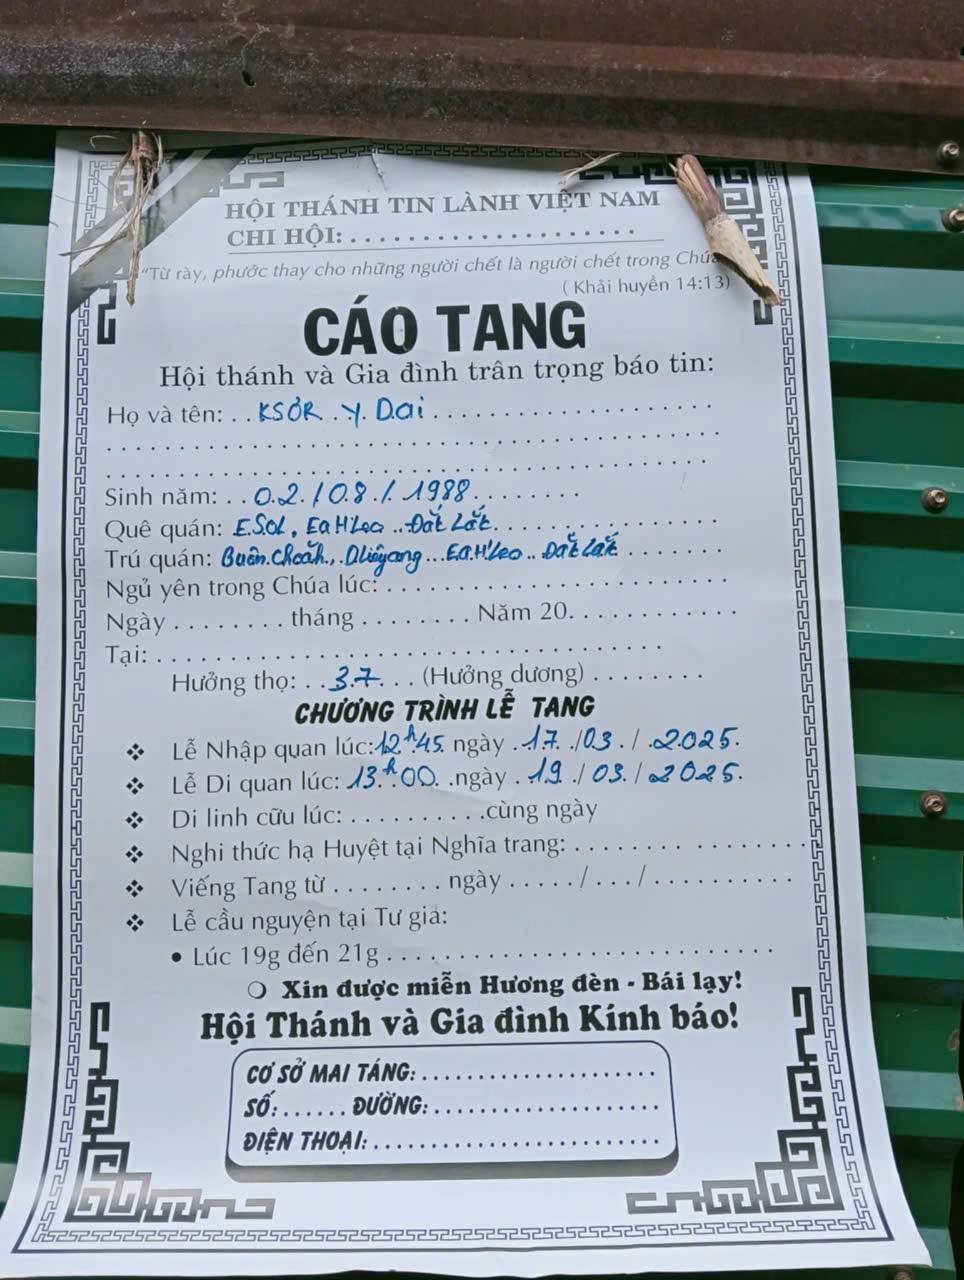 HỘI THÁNH TIN LÀNH VIỆT NAM
CHI HỘI: . . . . . . . . . . . . . . . . . . . .
"Từ rày, phước thay cho những người chết là người chết trong Chúa
( Khải huyền 14:13)
CÁO TANG
Hội thánh và Gia đình trân trọng báo tin:
Họ và tên: . . KSƠR . Y . Dai . . . . . . . . . . . . . . . . . . . .
Sinh năm: . . 02 / 08 / 1988 . . . . . . . .
Quê quán: E.Sol, EaH'Leo . . Đắk Lắk. . . . . . . . . . . . . . .
Trú quán: Buôn.Choăh., Dliêyang . . . Ea.H'leo . . Đắk Lắk . . . . . . .
Ngủ yên trong Chúa lúc: . . . . . . . . . . . . . . . . . . . . . . . .
Ngày . . . . . . . . tháng . . . . . . . . Năm 20. . . . . . . . . . . .
Tại: . . . . . . . . . . . . . . . . . . . . . . . . . . . . . . . . . . .
Hưởng thọ: . . 37 . . . (Hưởng dương) . . . . . . . .
CHƯƠNG TRÌNH LỄ TANG
❖ Lễ Nhập quan lúc: 12h45 ngày . 17 . / 03 . / . 2025.
❖ Lễ Di quan lúc: 13h00 . ngày . 19 . / 03 . / 2025.
❖ Di linh cữu lúc: . . . . . . . . . . cùng ngày
❖ Nghi thức hạ Huyệt tại Nghĩa trang: . . . . . . . . . . . . . . . . .
❖ Viếng Tang từ . . . . . . . . ngày . . . . . / . . . / . . . . . . . . . .
❖ Lễ cầu nguyện tại Tư gia:
• Lúc 19g đến 21g . . . . . . . . . . . . . . . . . . . . . . . . . . . .
❍ Xin được miễn Hương đèn - Bái lạy!
Hội Thánh và Gia đình Kính báo!
CƠ SỞ MAI TÁNG: . . . . . . . . . . . . . . . . . . . .
SỐ: . . . . . . ĐƯỜNG: . . . . . . . . . . . . . . . . . . .
ĐIỆN THOẠI: . . . . . . . . . . . . . . . . . . . . . . . .